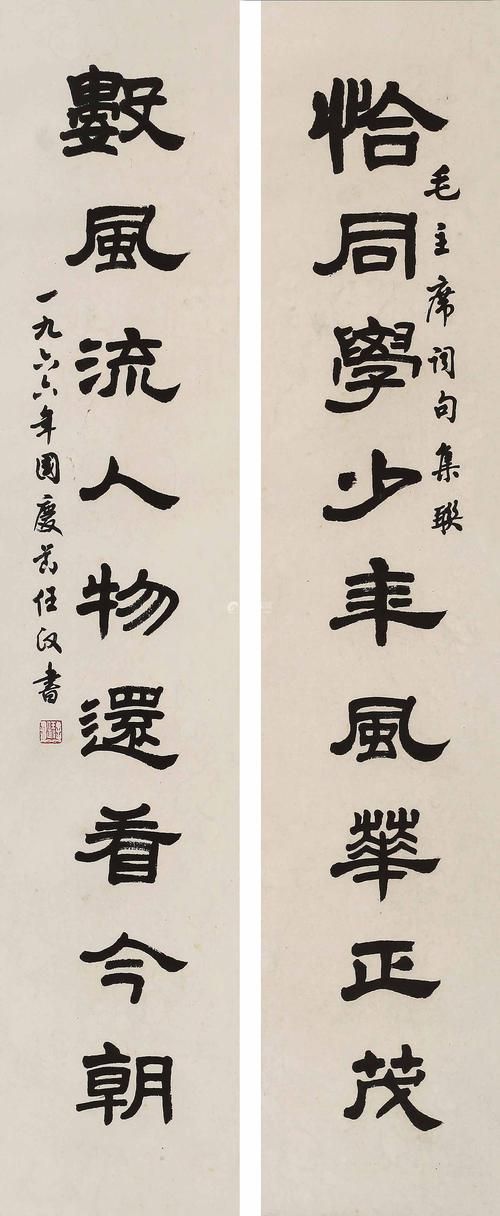 恰同學少年風華正茂
毛主席詞句集聯
數風流人物還看今朝
一九六六年國慶前任漢書